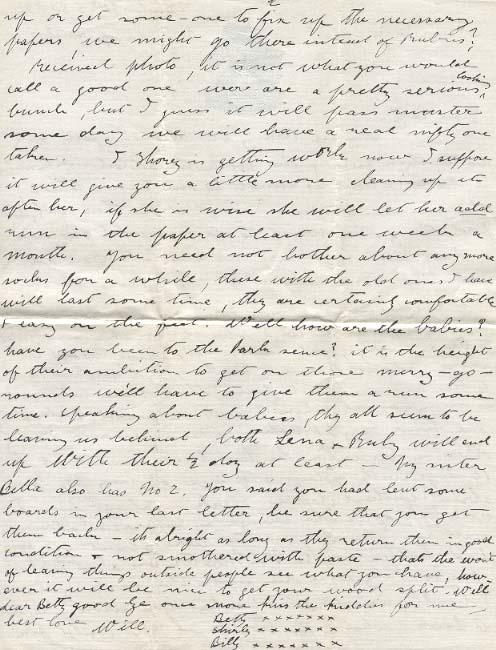 2
up or get some-one to fix up the necessary
papers, we might go there intead of Rubies?
Received photo, it is not what you would
call a good one were are a pretty serious looking
bunch, but I guess it will pass muster
some day we will have a real nifty one
taken. I is getting work now I suppose
it will give you a little more cleaning up to
after her, if she is wise she will let her add
run in the paper at least one week a
month. You need not bother about any more
socks for a while, these with the old ones I have
will last some time, they are certainly comfortable
& easy on the feet. Well how are the babies?
have you been to the Park sence? it is the height
of their ambition to get on those merry-go-
rounds we'll have to give them a run some
time. Speaking about babies, they all seem to be
leaving us behind, both Lena & Ruby will end
up with their ½ doz at least - My sister
Bella also has No 2. You said you had lent some
boards in your last letter, be sure that you get
them back - it's alright as long as they return them in good
condition & not smothered with paste - thats the worst
of leaving things outside people see what you have, how-
ever it will be nice to get your wood split. Well
dear Betty good bye once more kiss the kiddies for me
best love Will.
Betty xxxxxx
Shirley xxxxxxx
Billy xxxxxxx